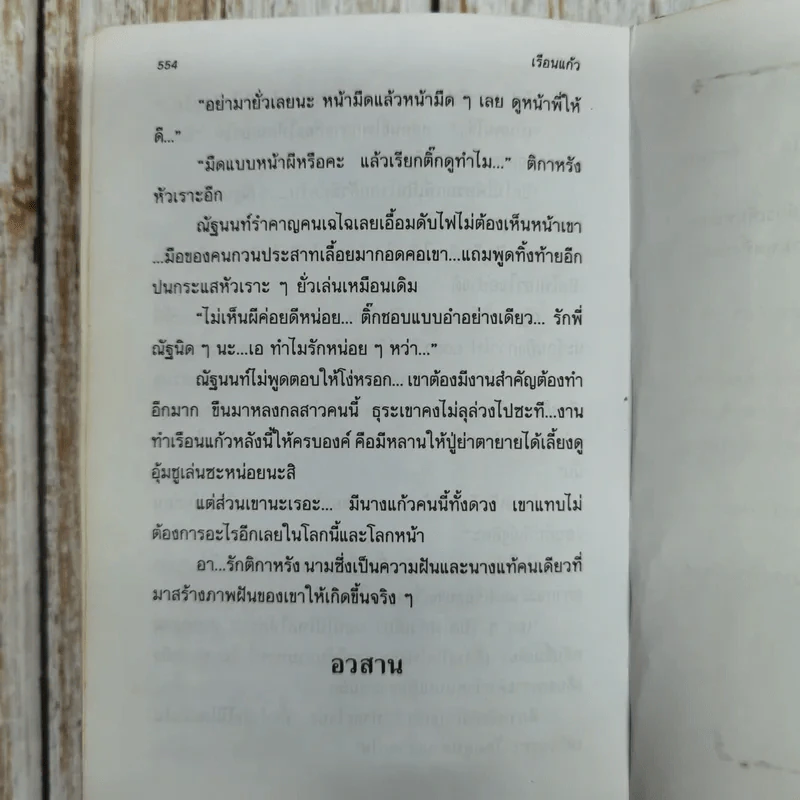 554
เรือนแก้ว
“อย่ามายั่วเลยนะ หน้ามืดแล้วหน้ามืด ๆ เลย ดูหน้าพี่ให้
ดี...”
“มืดแบบหน้าผีหรือคะ แล้วเรียกติ๊กดูทำไม...” ติกาหรัง
หัวเราะอีก
ณัฐนนท์รำคาญคนเฉไฉเลยเอื้อมดับไฟไม่ต้องเห็นหน้าเขา
...มือของคนกวนประสาทเลื้อยมากอดคอเขา...แถมพูดทิ้งท้ายอีก
ปนกระแสหัวเราะ ๆ ยั่วเล่นเหมือนเดิม
“ไม่เห็นผีค่อยดีหน่อย... ติ๊กชอบแบบอำอย่างเดียว... รักพี่
ณัฐนิด ๆ นะ...เอ ทำไมรักหน่อย ๆ หว่า...”
ณัฐนนท์ไม่พูดตอบให้โง่หรอก... เขาต้องมีงานสำคัญต้องทำ
อีกมาก ขืนมาหลงกลสาวคนนี้ ธุระเขาคงไม่ลุล่วงไปซะที...งาน
ทำเรือนแก้วหลังนี้ให้ครบองค์ คือมีหลานให้ปู่ย่าตายายได้เลี้ยงดู
อุ้มชูเล่นซะหน่อยนะสิ
แต่ส่วนเขานะเรอะ... มีนางแก้วคนนี้ทั้งดวง เขาแทบไม่
ต้องการอะไรอีกเลยในโลกนี้และโลกหน้า
อา...รักติกาหรัง นามซึ่งเป็นความฝันและนางแท้คนเดียวที่
มาสร้างภาพฝันของเขาให้เกิดขึ้นจริง ๆ
อวสาน